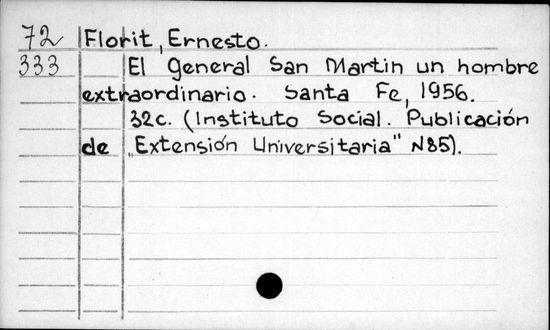 72 Florit, Ernesto.
333 El general San Martin un hombre
extraordinario. Santa Fe, 1956.
32c. (Instituto Social. Publicación
de „Extensión Universitaria" N85).